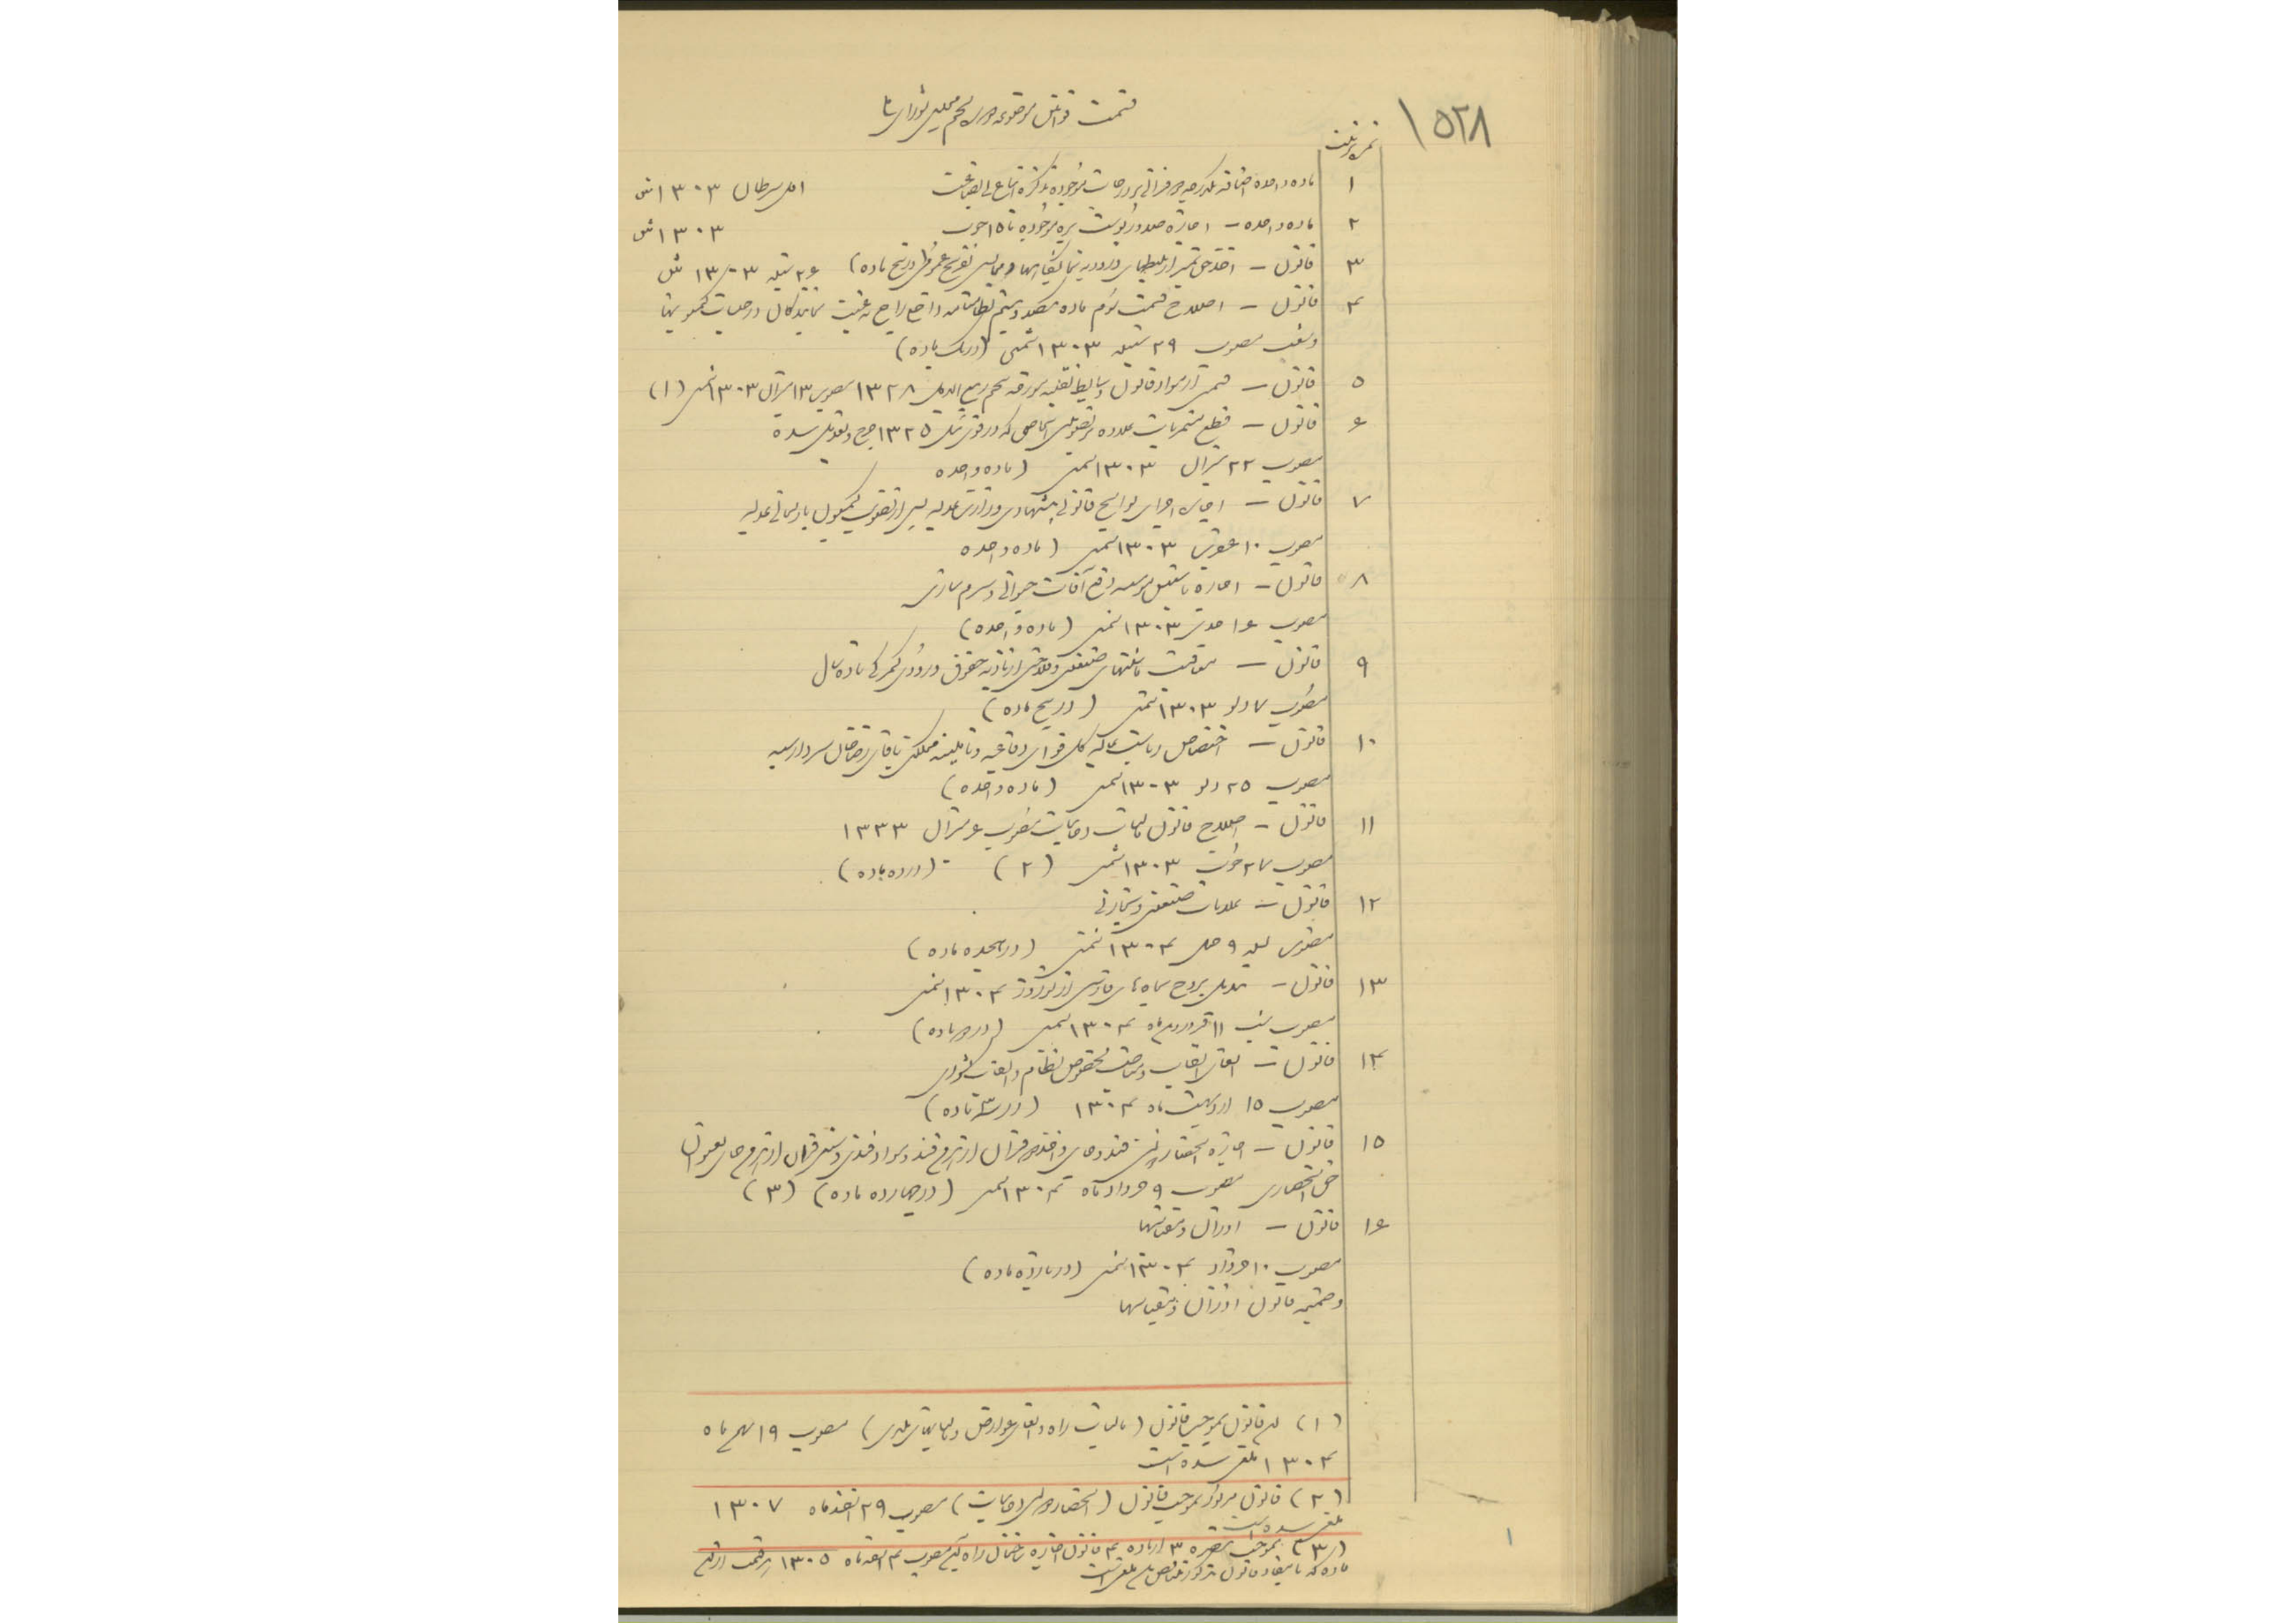 ۱۵۲۸
قسمت قوانین موضوعه دوره پنجم مجلس شورای
نمره ترتیب
۱ ماده واحده اضافه یکصد و قرانی بر درجات اتباع ۱ سرطان ۱۳۰۳ ش
۲ ماده واحده – اجازه صدور پوست بره تا ۱۵ حوت ۱۳۰۳ ش
۳ قانون – اخذ حق تمبر از بلیطهای ورودیه نمایشگاهها و مجالس تفریح عمومی (در پنج ماده) ۲۶ سنبله ۱۳۰۳ ش
۴ قانون – اصلاح قسمت سوم ماده یکصد و بیستم نظامنامه داخلی راجع به غیبت نمایندگان در جلسات کمیسیونها
و شعب مصوب ۲۹ سنبله ۱۳۰۳ شمسی (در یک ماده)
۵ قانون – قسمتی از مواد قانون وسایط نقلیه مورخه پنجم ربیع الاول ۱۳۲۸ مصوب ۱۳ میزان ۱۳۰۳ شمسی (۱)
۶ قانون – قطع مستمریات علاوه بر تصویبی اشخاصی که در قوی ئیل ۱۳۲۵ جرح و تعدیل شده
مصوب ۲۲ میزان ۱۳۰۳ شمسی (ماده واحده
۷ قانون – اجازه اجرای لوایح قانونی پیشنهادی وزارت عدلیه پس از تصویب کمیسیون پارلمانی عدلیه
مصوب ۱۰ عقرب ۱۳۰۳ شمسی (ماده واحده
۸ قانون – اجازه تأسیس موسسه دفع آفات حیوانی و سرم سازی
مصوب ۱۶ جدی ۱۳۰۳ شمسی (ماده واحده)
۹ قانون – معافیت ماشینهای صنعتی و فلاحتی از تأدیه حقوق ورودی گمرکی تا ده سال
مصوب ۷ دلو ۱۳۰۳ شمسی (در پنج ماده)
۱۰ قانون – اختصاص ریاست عالیه کل قوای دفاعیه و تأمینیه مملکتی بآقای رضاخان سردار سپه
مصوب ۲۵ دلو ۱۳۰۳ شمسی (ماده واحده)
۱۱ قانون – اصلاح قانون مالیات دخانیات مصوب ۶ میزان ۱۳۳۳
مصوب ۲۷ حوت ۱۳۰۳ شمسی (۲) (در ده ماده)
۱۲ قانون – علامات صنعتی و تجارتی
مصوب لیله ۹ حمل ۱۳۰۴ شمسی (در هیجده ماده)
۱۳ قانون – تبدیل بروج بماه های فارسی از نوروز ۱۳۰۴ شمسی
مصوب شب ۱۱ فروردین ماه ۱۳۰۴ شمسی (در دو ماده)
۱۴ قانون – الغای القاب و مناصب مخصوص نظام و القاب کشوری
مصوب ۱۵ اردیبهشت ماه ۱۳۰۴ (در سه ماده)
۱۵ قانون – اجازه انحصار قند و چای و اخذ دو قران از هر من قند و مواد قندی و شش قران از هر من چای بعنوان
حق انحصاری مصوب ۹ خرداد ماه ۱۳۰۴ شمسی (در چهارده ماده) (۳)
۱۶ قانون – اوزان و مقیاسها
مصوب ۱۰ خرداد ۱۳۰۴ شمسی (در یازده ماده)
و ضمیمه قانون اوزان و مقیاسها
(۱) این قانون بموجب قانون (مالیات راه و الغای عوارض و مالیاتهای بلدی) مصوب ۱۹ بهمن ماه
۱۳۰۴ ملغی شده است
(۲) قانون مزبور بموجب قانون (انحصار دولتی دخانیات) مصوب ۲۹ اسفند ماه ۱۳۰۷
ملغی شده است
(۳) بموجب تبصره ۳ از ماده ۴ قانون اجازه ساختمان راه آهن مصوب ۴ اسفند ماه ۱۳۰۵ هر قسمت از این
ماده که با مفاد قانون مذکور متناقض باشد ملغی است
۱